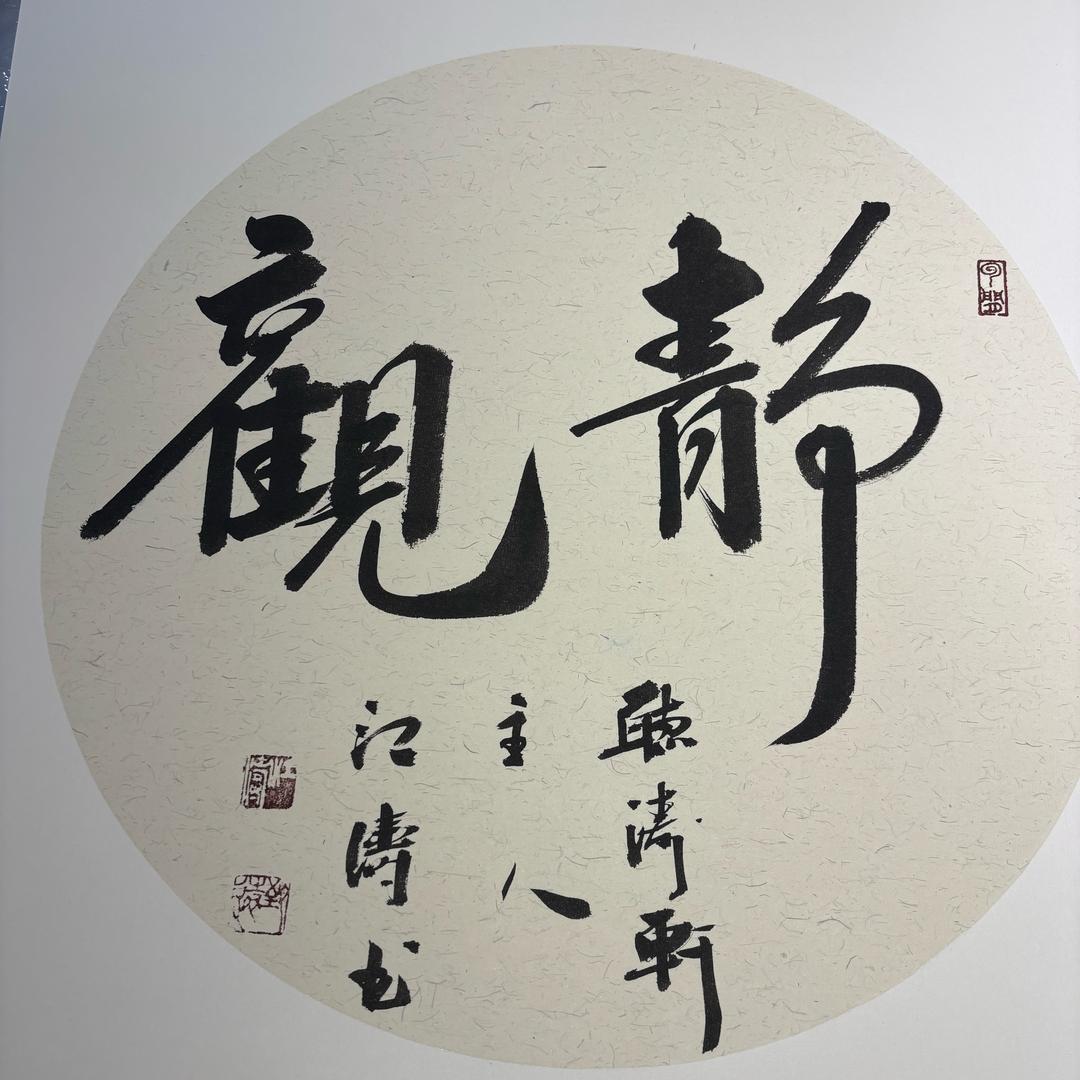 靜觀
聽濤軒
主人
江濤书